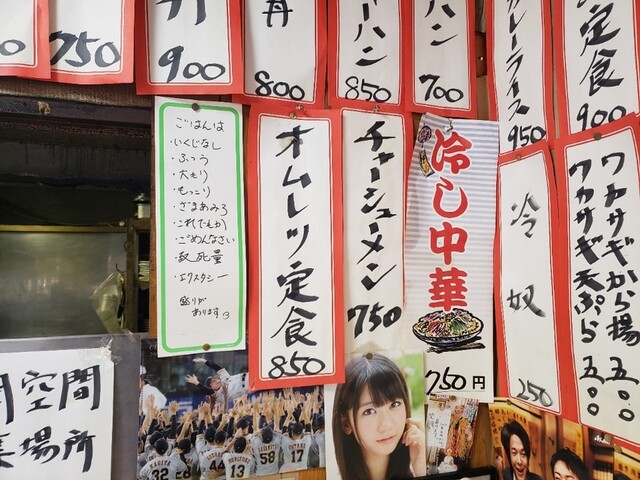 750
900
丼
800
ーハン
850
ハン
700
カレーライス
950
定食
900
ごはんは
・いくじなし
・ふつう
・大もり
・もっこり
・ざまあみろ
・これでもか
・ごめんなさい
・致死量
・エクスタシー
盛りが
あります
オムレツ定食
850
チャーシューメン
750
冷し中華
750円
冷奴
250
ワカサギから揚 五〇〇
ワカサギ天ぷら 五〇〇
空間
場所
32
44
13
58
17